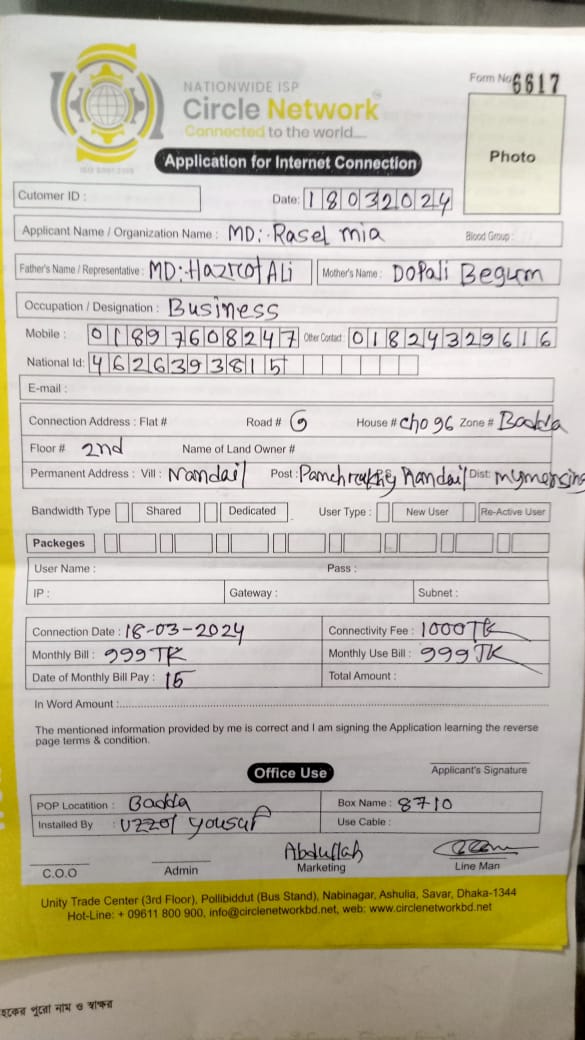 Form No 6617
NATIONWIDE ISP
Circle Network
Connected to the world....
ISO 9001:2015
Photo
Application for Internet Connection
Cutomer ID :
Date: 18032024
Applicant Name / Organization Name : MD: Rasel mia Blood Group :
Father's Name / Representative : MD: Hazrot Ali Mother's Name : Dopali Begum
Occupation / Designation : Business
Mobile : 01897608247 Other Contact : 01824329616
National Id: 4626393815
E-mail :
Connection Address : Flat # Road # House # cho 96 Zone # Badda
Floor # 2nd Name of Land Owner #
Permanent Address : Vill : Nandail Post : Nandail Dist: mymensing
Bandwidth Type Shared Dedicated User Type : New User Re-Active User
Packeges
User Name : Pass :
IP : Gateway : Subnet :
Connection Date : 18-03-2024 Connectivity Fee : 1000 TK
Monthly Bill : 999 TK Monthly Use Bill : 999 TK
Date of Monthly Bill Pay : 15 Total Amount :
In Word Amount :
The mentioned information provided by me is correct and I am signing the Application learning the reverse
page terms & condition.
Applicant's Signature
Office Use
POP Locatition : Badda Box Name : 8710
Installed By : Uzzol Yousuf Use Cable :
Abdullah
C.O.O Admin Marketing Line Man
Unity Trade Center (3rd Floor), Pollibiddut (Bus Stand), Nabinagar, Ashulia, Savar, Dhaka-1344
Hot-Line: + 09611 800 900, info@circlenetworkbd.net, web: www.circlenetworkbd.net
পুরো নাম ও স্বাক্ষর